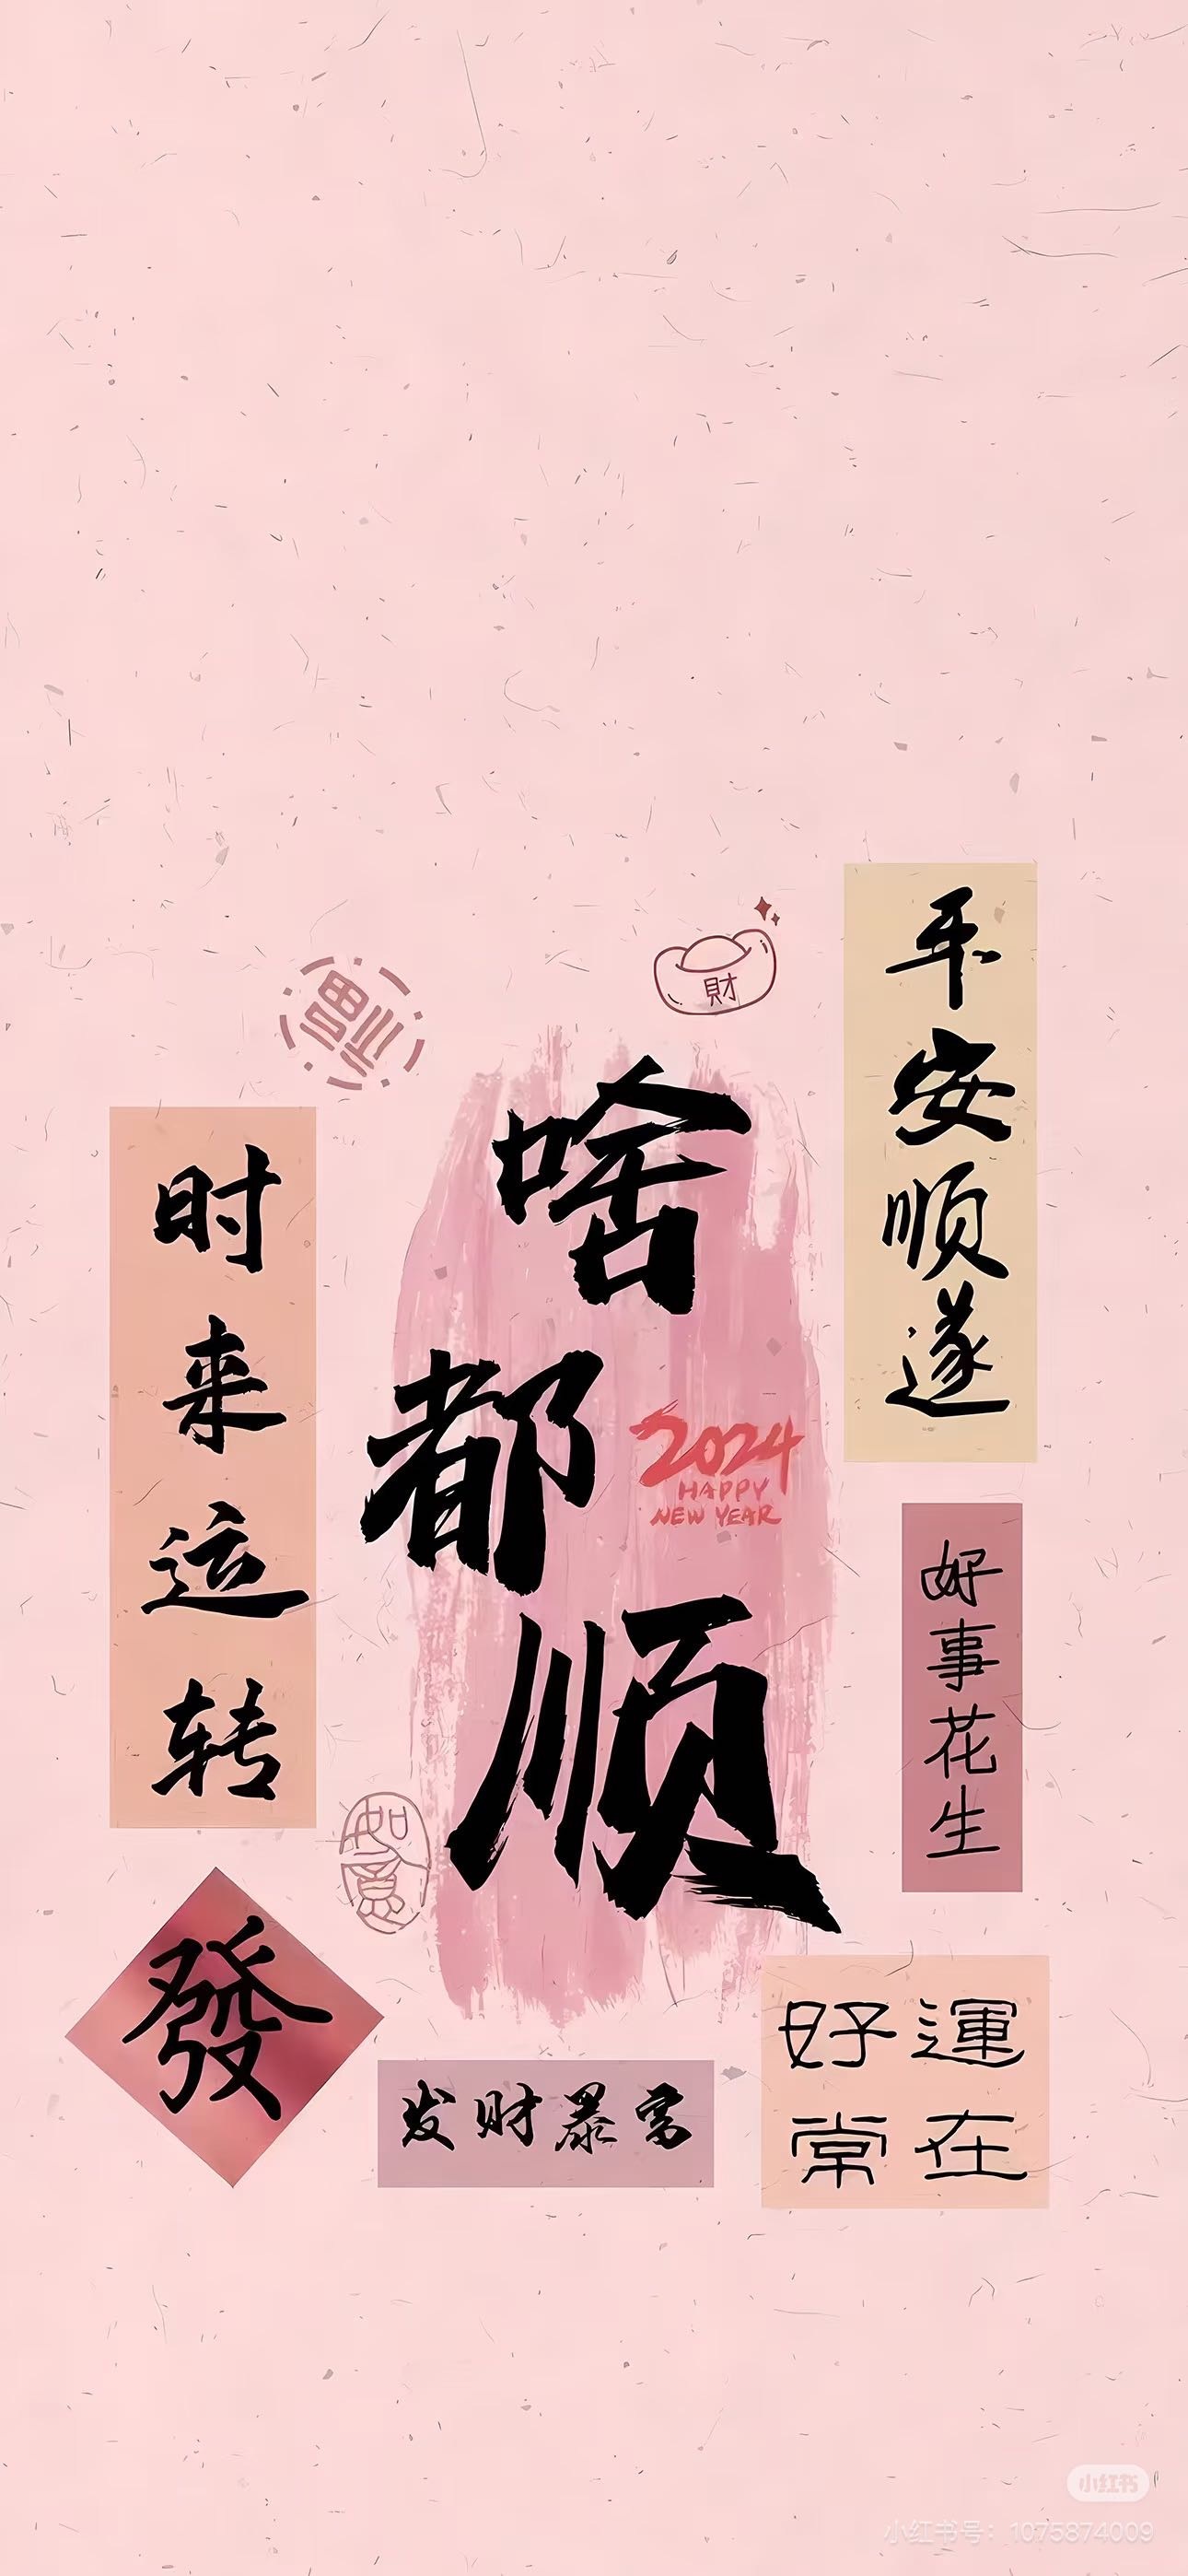 平安顺遂
財
福
时来运转
啥
都
顺
2024
HAPPY
NEW YEAR
好事花生
如意
發
发财暴富
好運
常在
小红书
小红书号：1075874009